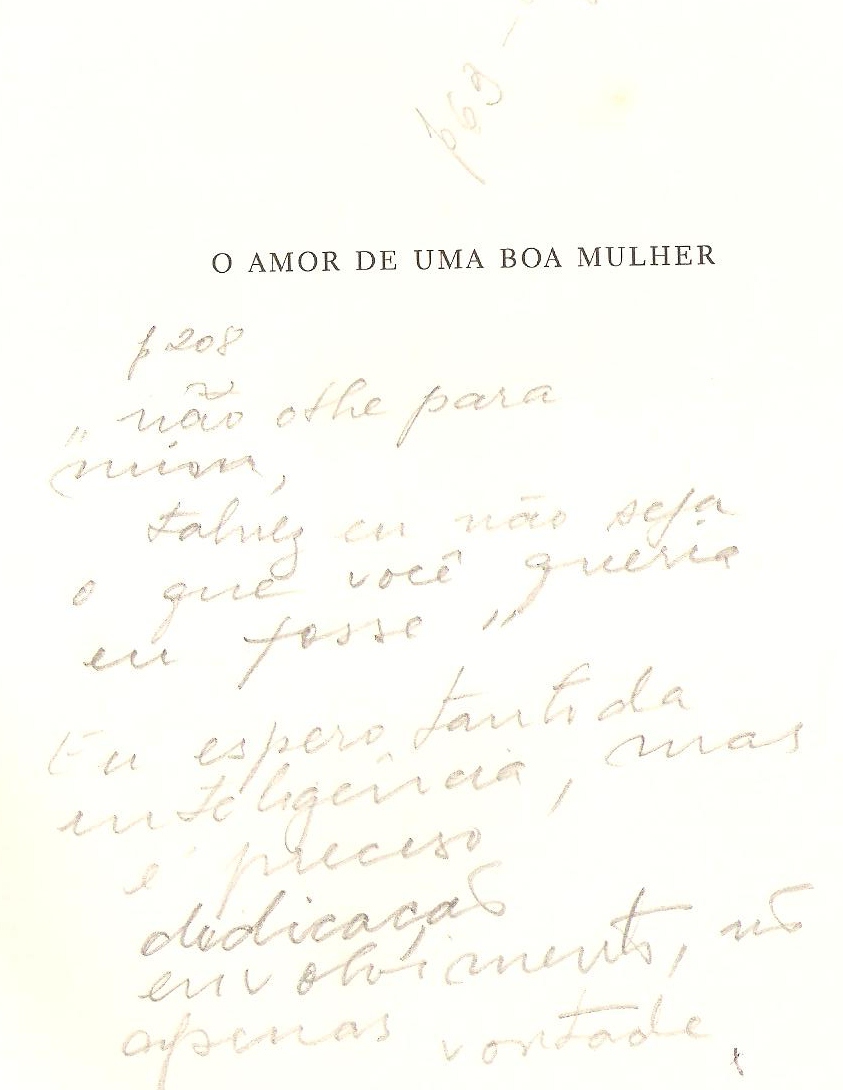 p 63
O AMOR DE UMA BOA MULHER
p 208
" não olhe para
mim,
talvez eu não seja
o que você queria
eu fosse "
Eu espero tanto da
inteligência, mas
é preciso
dedicação
envolvimento, não
apenas vontade